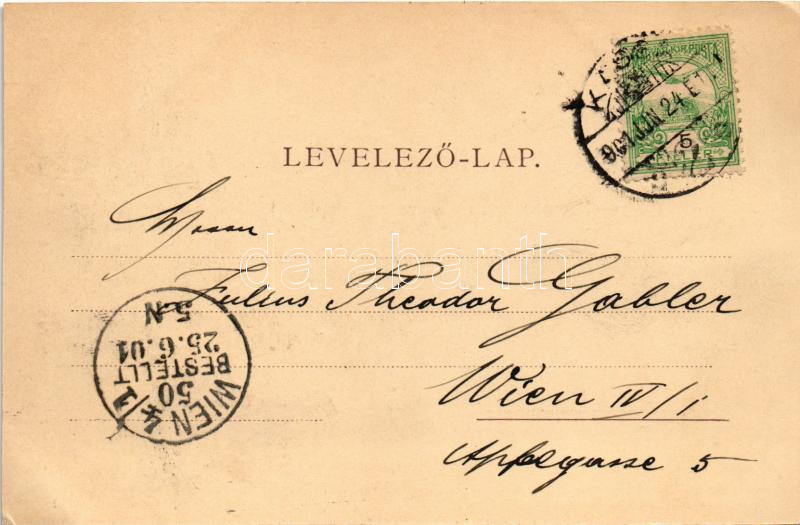 MAGYAR KIR. POSTA
5
901 JUN 24 E
LEVELEZŐ-LAP.
Herrn
Julius Theodor Gabler
Wien IV/1
Apfelgasse 5
WIEN 4/1
50
BESTELLT
25.6.01
5.N
darabanth